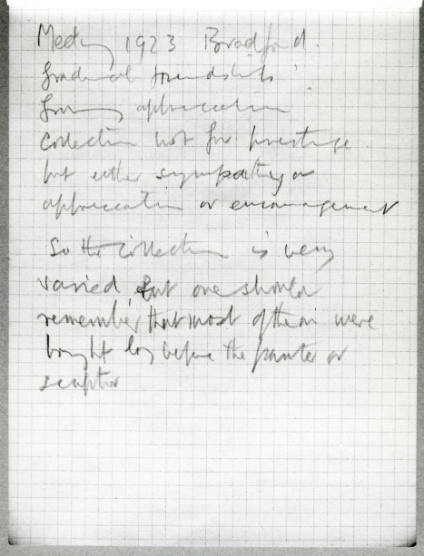 Meeting 1923 Bradford.
gradual friendships
growing appreciation
collection not for prestige
but either sympathy or
appreciation or encouragement
So the collection is very
varied, but one should
remember that most of them were
bought long before the painter or
sculptor